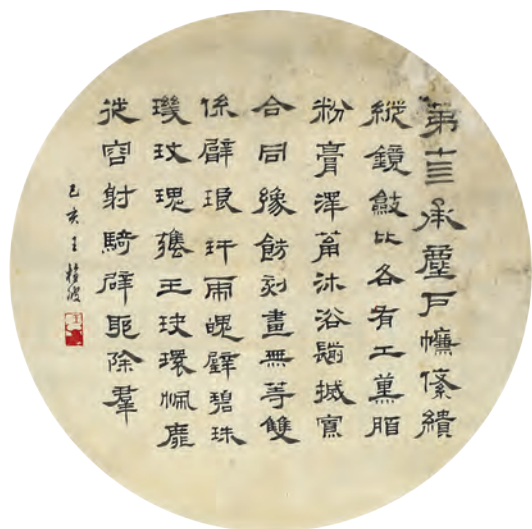 第十三承塵戶㡘絛繢
縱鏡斂比各有工薰脂
粉膏澤筩沐浴揃搣寡
合同豫飭刻畫無等雙
係臂琅玕虎魄璧碧珠
璣玫瑰罋玉玦環佩靡
從容射騎辟耶除羣
己亥王波